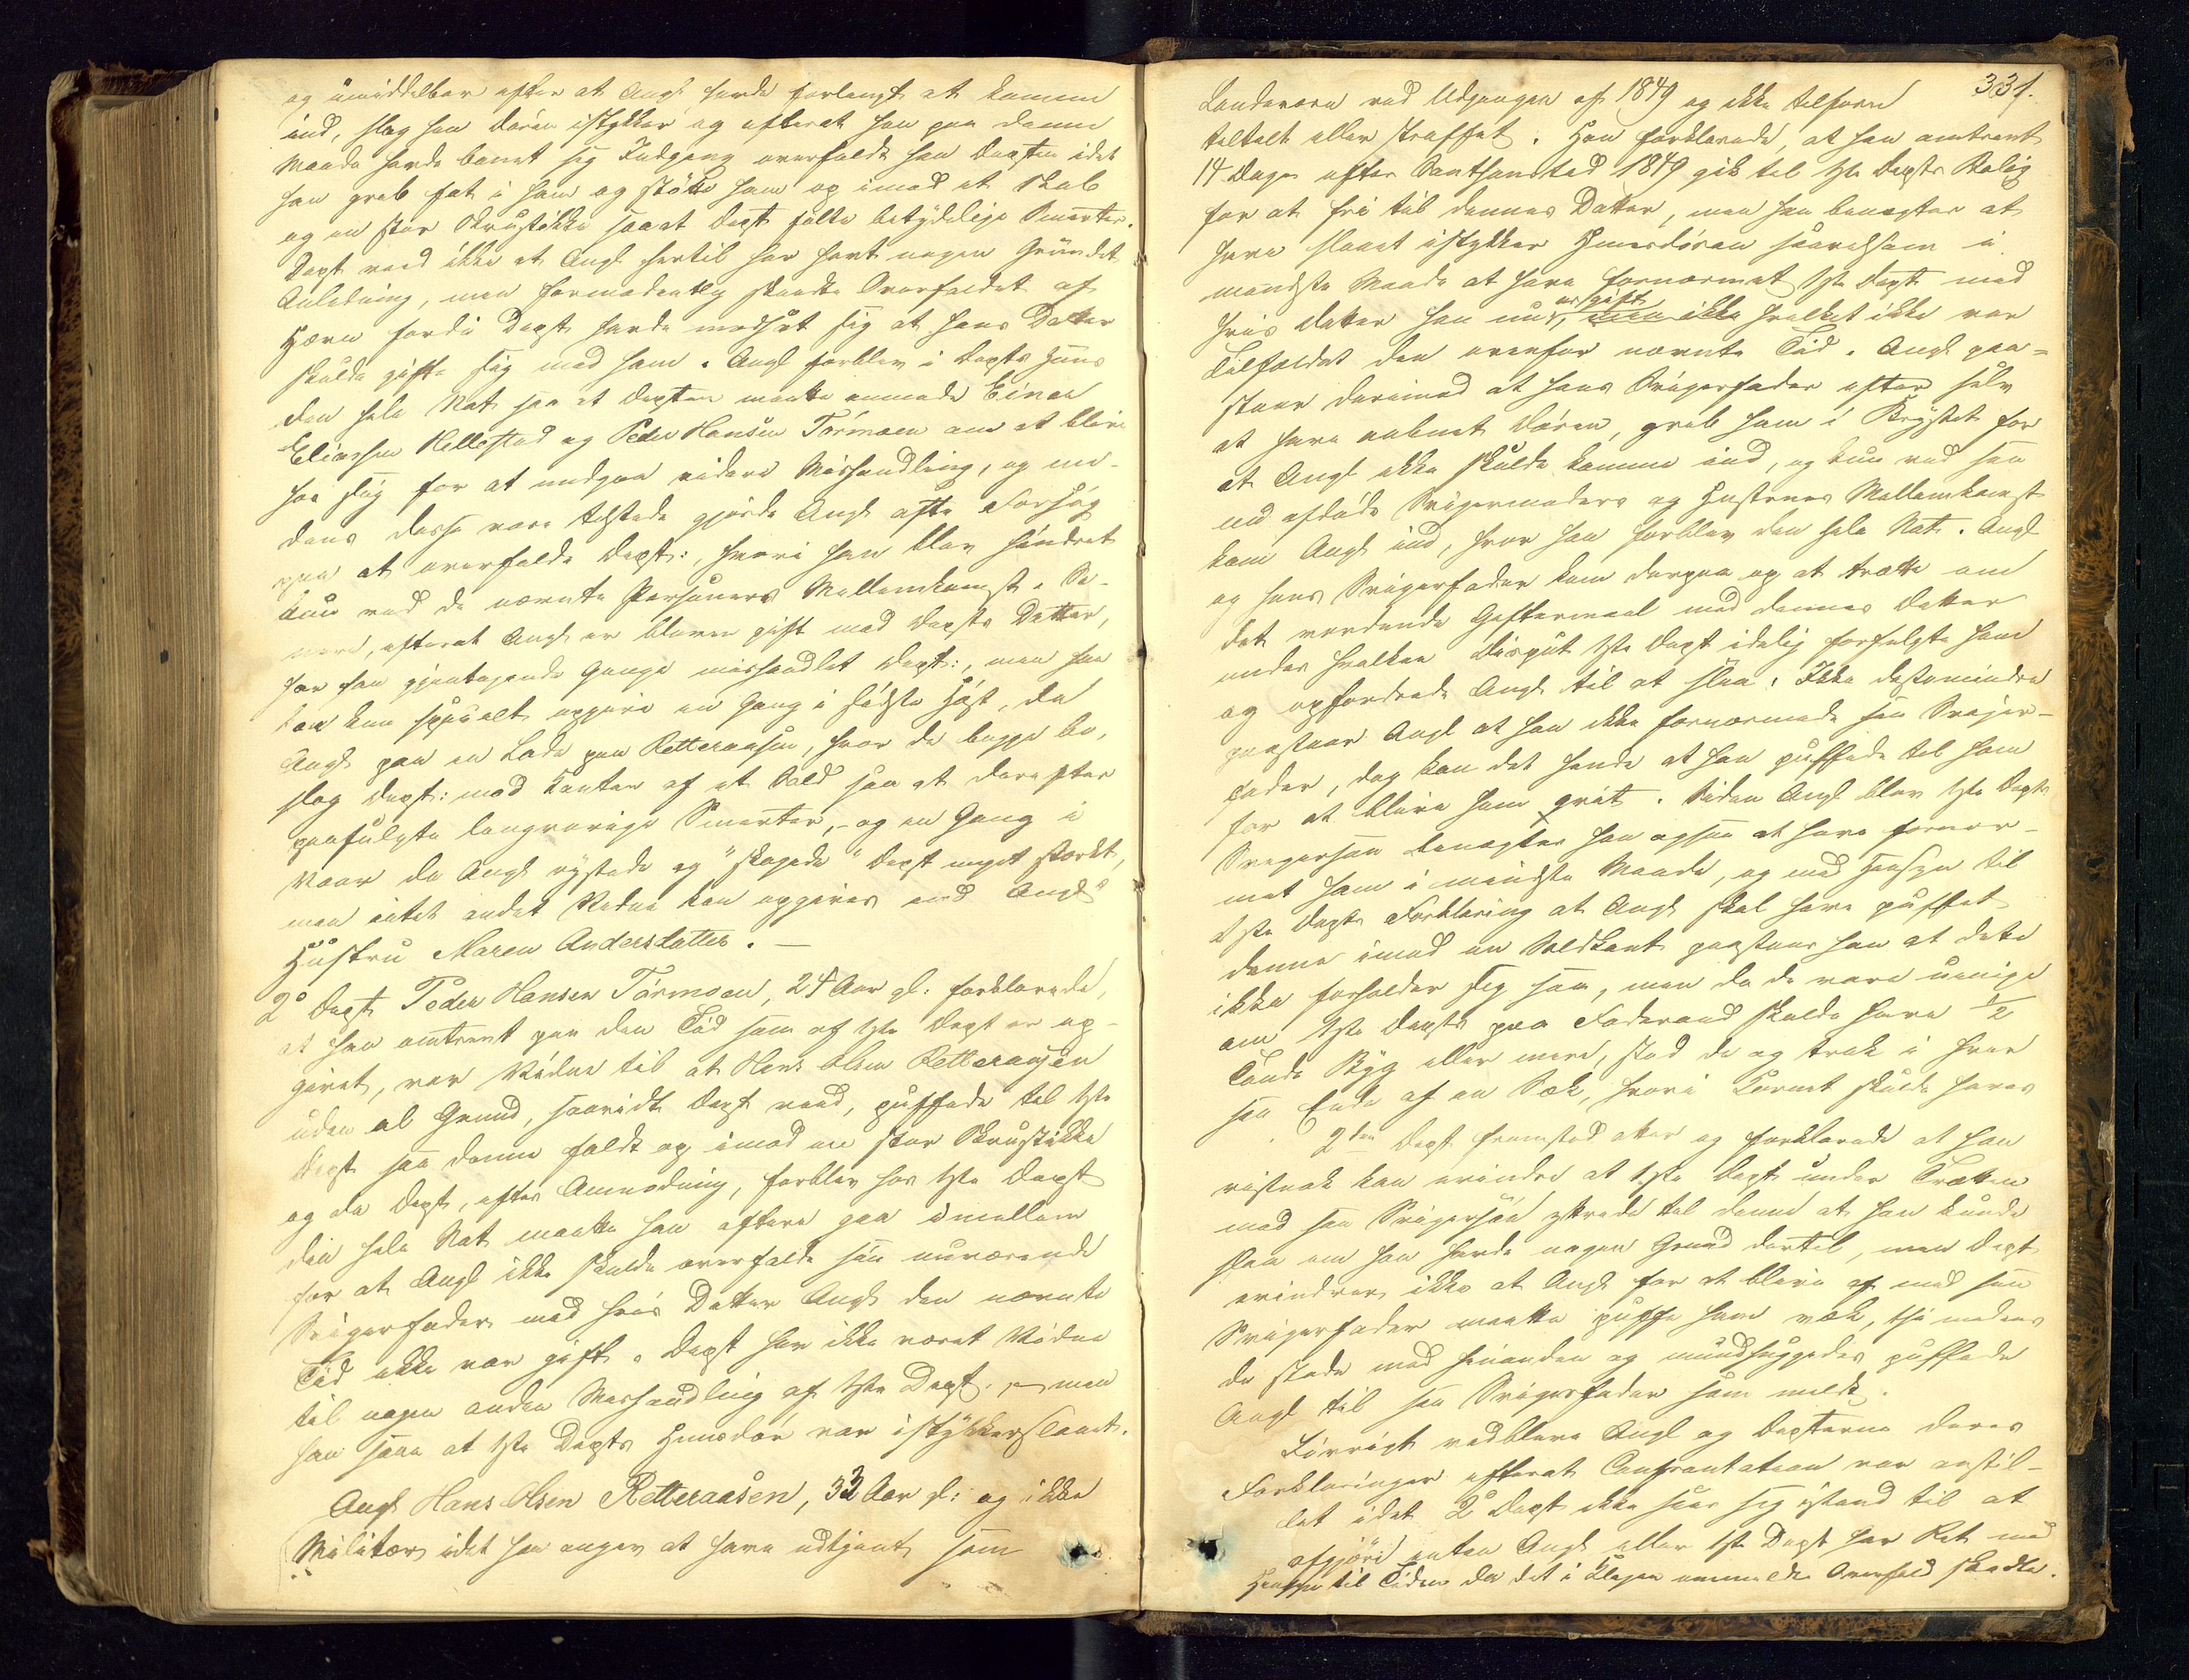 og umiddelbar efter at Angl havde forlangt at komme
ind, slog han Døren istykker og efterat han paa denne
Maade havde banet sig Indgang overfaldt han Depten idet
han greb fat i ham og stødte ham op imod et Skab
og en stor Skrustikke saa at Dept følte betydelige Smerter.
Dept veed ikke at Angl hertil har havt nogen Grundet
Anledning, men formodentlig skeede Overfaldet af
Hævn fordi Dept havde modsat sig at hans Datter
skulde gifte sig med ham. Angl forblev i Depts Huus
den hele Nat saa at Depten maatte anmode Einer
Eliassen Hellestad og Peder Hansen Tørmoen om at blive
hos sig for at undgaa videre Mishandling, og me-
dens disse vare tilstede gjorde Angl ofte Forsøg
paa at overfalde Dept:, hvori han blev hindret
kun ved de nævnte Personers Mellemkomst. Se-
nere, efterat Angl er bleven gift med Depts Datter,
har han gjentagende Gange mishandlet Dept:, men han
kan kun specielt opgive en Gang i sidste Høst, da
Angl paa en Lade paa Retteraasen, hvor de begge bo,
slog Dept: mod Kanten af et Sold saa at derefter
paafulgte langvarige Smerter, - og en Gang i
Vaar da Angl rystede og "skagede" Dept meget stærkt,
men intet andet Vidne kan opgives end Angls
Hustru Maren Andersdatter. —
2o Dept Peder Hansen Tørmoen, 24 Aar gl: forklarede,
at han omtrent paa den Tid som af 1ste Dept er op-
givet, var Vidne til at Hans Olsen Retteraasen
uden al Grund, saavidt Dept veed, puffede til 1ste
Dept saa denne faldt op imod en stor Skrustikke
og da Dept, efter Anmodning, forblev hos 1ste Dept
den hele Nat maatte han oftere gaa imellem
for at Angl ikke skulde overfalde sin nuværende
Svigerfader med hvis Datter Angl den nævnte
Tid ikke var gift. Dept har ikke været Vidne
til nogen anden Mishandling af 1ste Dept. men
han saae at 1ste Depts Huusdør var istykkerslaaet.
Angl Hans Olsen Retteraasen, 33 Aar gl: og ikke
Militær idet han angav at have udtjent som
331.
Landeværn ved Udgangen af 1849 og ikke tilforn
tiltalt eller straffet. Han forklarede, at han omtrent
14 Dage efter Santhanstid 1849 gik til 1ste Depts Bolig
for at fri til dennes Datter, men han benegter at
have slaaet istykker Huusdøren saavelsom i
mindste Maade at have fornærmet 1ste Dept med
er gift
hvis Datter han nu, men ikke hvilket ikke var
Tilfældet den ovenfor nævnte Tid. Angl paa-
staar derimod at hans Svigerfader efter selv
at have aabnet Døren, greb ham i Brystet for
at Angl ikke skulde komme ind, og kun ved sin
nu afdøde Svigermoders og Hustrues Mellemkomst
kom Angl ind, hvor han forblev den hele Nat. Angl
og hans Svigerfader kom derpaa op at trætte om
det vordende Giftermaal med dennes Datter
under hvilken Disput 1ste Dept idelig forfulgte ham
og opfordrede Angl til at slaa. Ikke destomindre
paastaar Angl at han ikke fornærmede sin Sviger-
fader, dog kan det hende at han puffede til ham
for at blive ham qvit. Siden Angl blev 1ste Depts
Svigersøn benegter han ogsaa at have fornær-
met ham i mindste Maade, og med Hensyn til
1ste Depts Forklaring at Angl skal have puffet
denne imod en Soldkant paastaar han at dette
ikke forholder sig saa, men da de vare uenige
om 1ste Dept paa Føderaad skulde have 1/2
Tønde Byg eller mere, stod de og trak i hver
sin Ende af en Sæk, hvori Kornet skulde haves
2den Dept fremstod atter og forklarede at han
vistnok kan erindre at 1ste Dept under Trætten
med sin Svigersøn ytrede til denne at han kunde
slaa om han havde nogen Grund dertil, men Dept
erindrer ikke at Angl for at blive af med sin
Svigerfader maatte puffe ham væk, thi medens
de stode mod hinanden og mundhuggedes puffede
Angl til sin Svigerfader som meldt.
Forresten vedbleve Angl og Depterne deres
Forklaringer efterat Confrontation var anstil-
let idet 2o Dept ikke saae sig istand til at
afgjøre enten Angl eller 1ste Dept har Ret med
Hensyn til Tiden da det i Klagen anmeldte Overfald skedte.